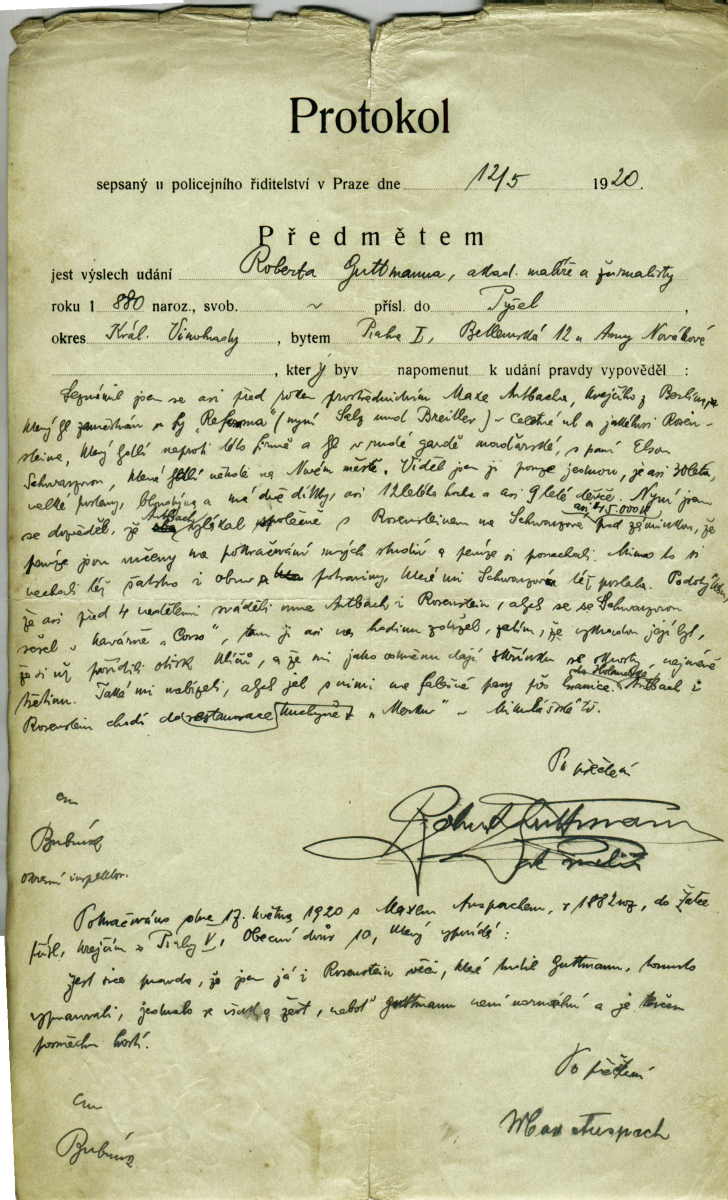 Protokol
sepsaný u policejního řiditelství v Praze dne 12/5 1920.
Předmětem
jest výslech udání Roberta Guttmanna, akad. malíře a žurnalisty
roku 1 880 naroz., svob. ~ přísl. do Pyšel,
okres Král. Vinohrady, bytem Praha I, Betlemská 12 u Anny Novákové
, který byv napomenut k udání pravdy vypověděl :
Seznámil jsem se asi před rokem prostřednictvím Maxe Antbacha, krejčího z Berlína,
který je zaměstnán u fy "Reforma" (nyní Salz und Breitler) v Celetné ul. a jakéhosi Rosen-
steina, který bydlí naproti této firmě a je v rudé gardě maďarské, s paní Elsou
Schwarzovou, která bydlí někde na Novém městě. Viděl jsem ji pouze jednou, je asi 30letá,
velké postavy, blondýna a má dvě dítky, asi 12letého hocha a asi 9 leté děvče. Nyní jsem
se dozvěděl, že Antbach vylákal společně s Rosensteinem na Schwarzové asi 15.000 K pod záminkou, že
peníze jsou určeny na pokračování mých studií a peníze si ponechali. Mimo to si
nechali též šatstvo i obuv a potraviny, které mi Schwarzová též poslala. Podotýkám,
že asi před 4 nedělemi sváděli mne Antbach i Rosenstein, abych se se Schwarzovou
sešel v kavárně „Corso", tam ji asi na hodinu zdržel, zatím, že vykradou její byt,
že si už pořídili otisk klíčů, a že mi jako odměnu dají skřínku se skvosty, nejméně
třetinu. Také mi nabízeli, abych jel s nimi na falešné pasy přes hranice do Holandska. Antbach i
Rosenstein chodí do restaurace kuchyně „Merkur" v Mikulášské tř.
Po přečtení
Robert Guttmann
ak malíř
em
Bubník
okresní inspektor.
Pokračováno dne 17. května 1920 s Maxem Auspachem, r 1882 roz, do Žatce
přísl, krejčím z Prahy V, Obecní dvůr 10, který vypovídá:
Jest sice pravda, že jsem já i Rosenstein věci, které tvrdil Guttmann, tomuto
vypravovali, jednalo se však o žert, neboť Guttmann není normální a je terčem
posměchu hostí.
Po přečtení
Max Auspach
em
Bubník